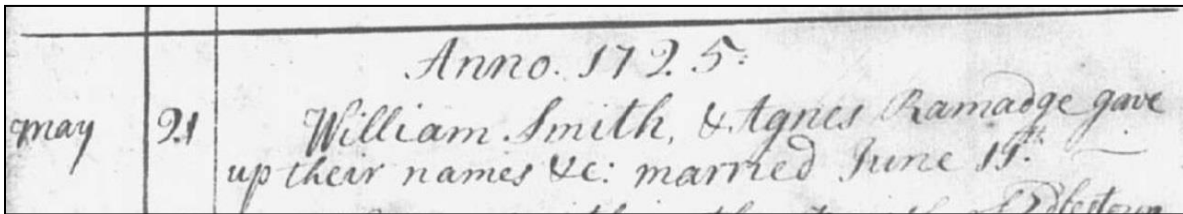 Anno. 1725:
May 21 William Smith, & Agnes Ramadge gave
up their names &c: married June 11th.